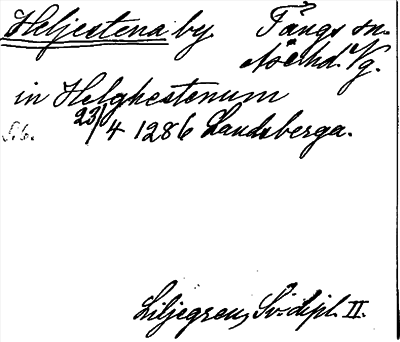 Heljestena by. Fängs sn.
Åse hd. Vg.
in Helghestenum
23/4 1286 Landsberga.
Liljegren, Sv. dipl. II.